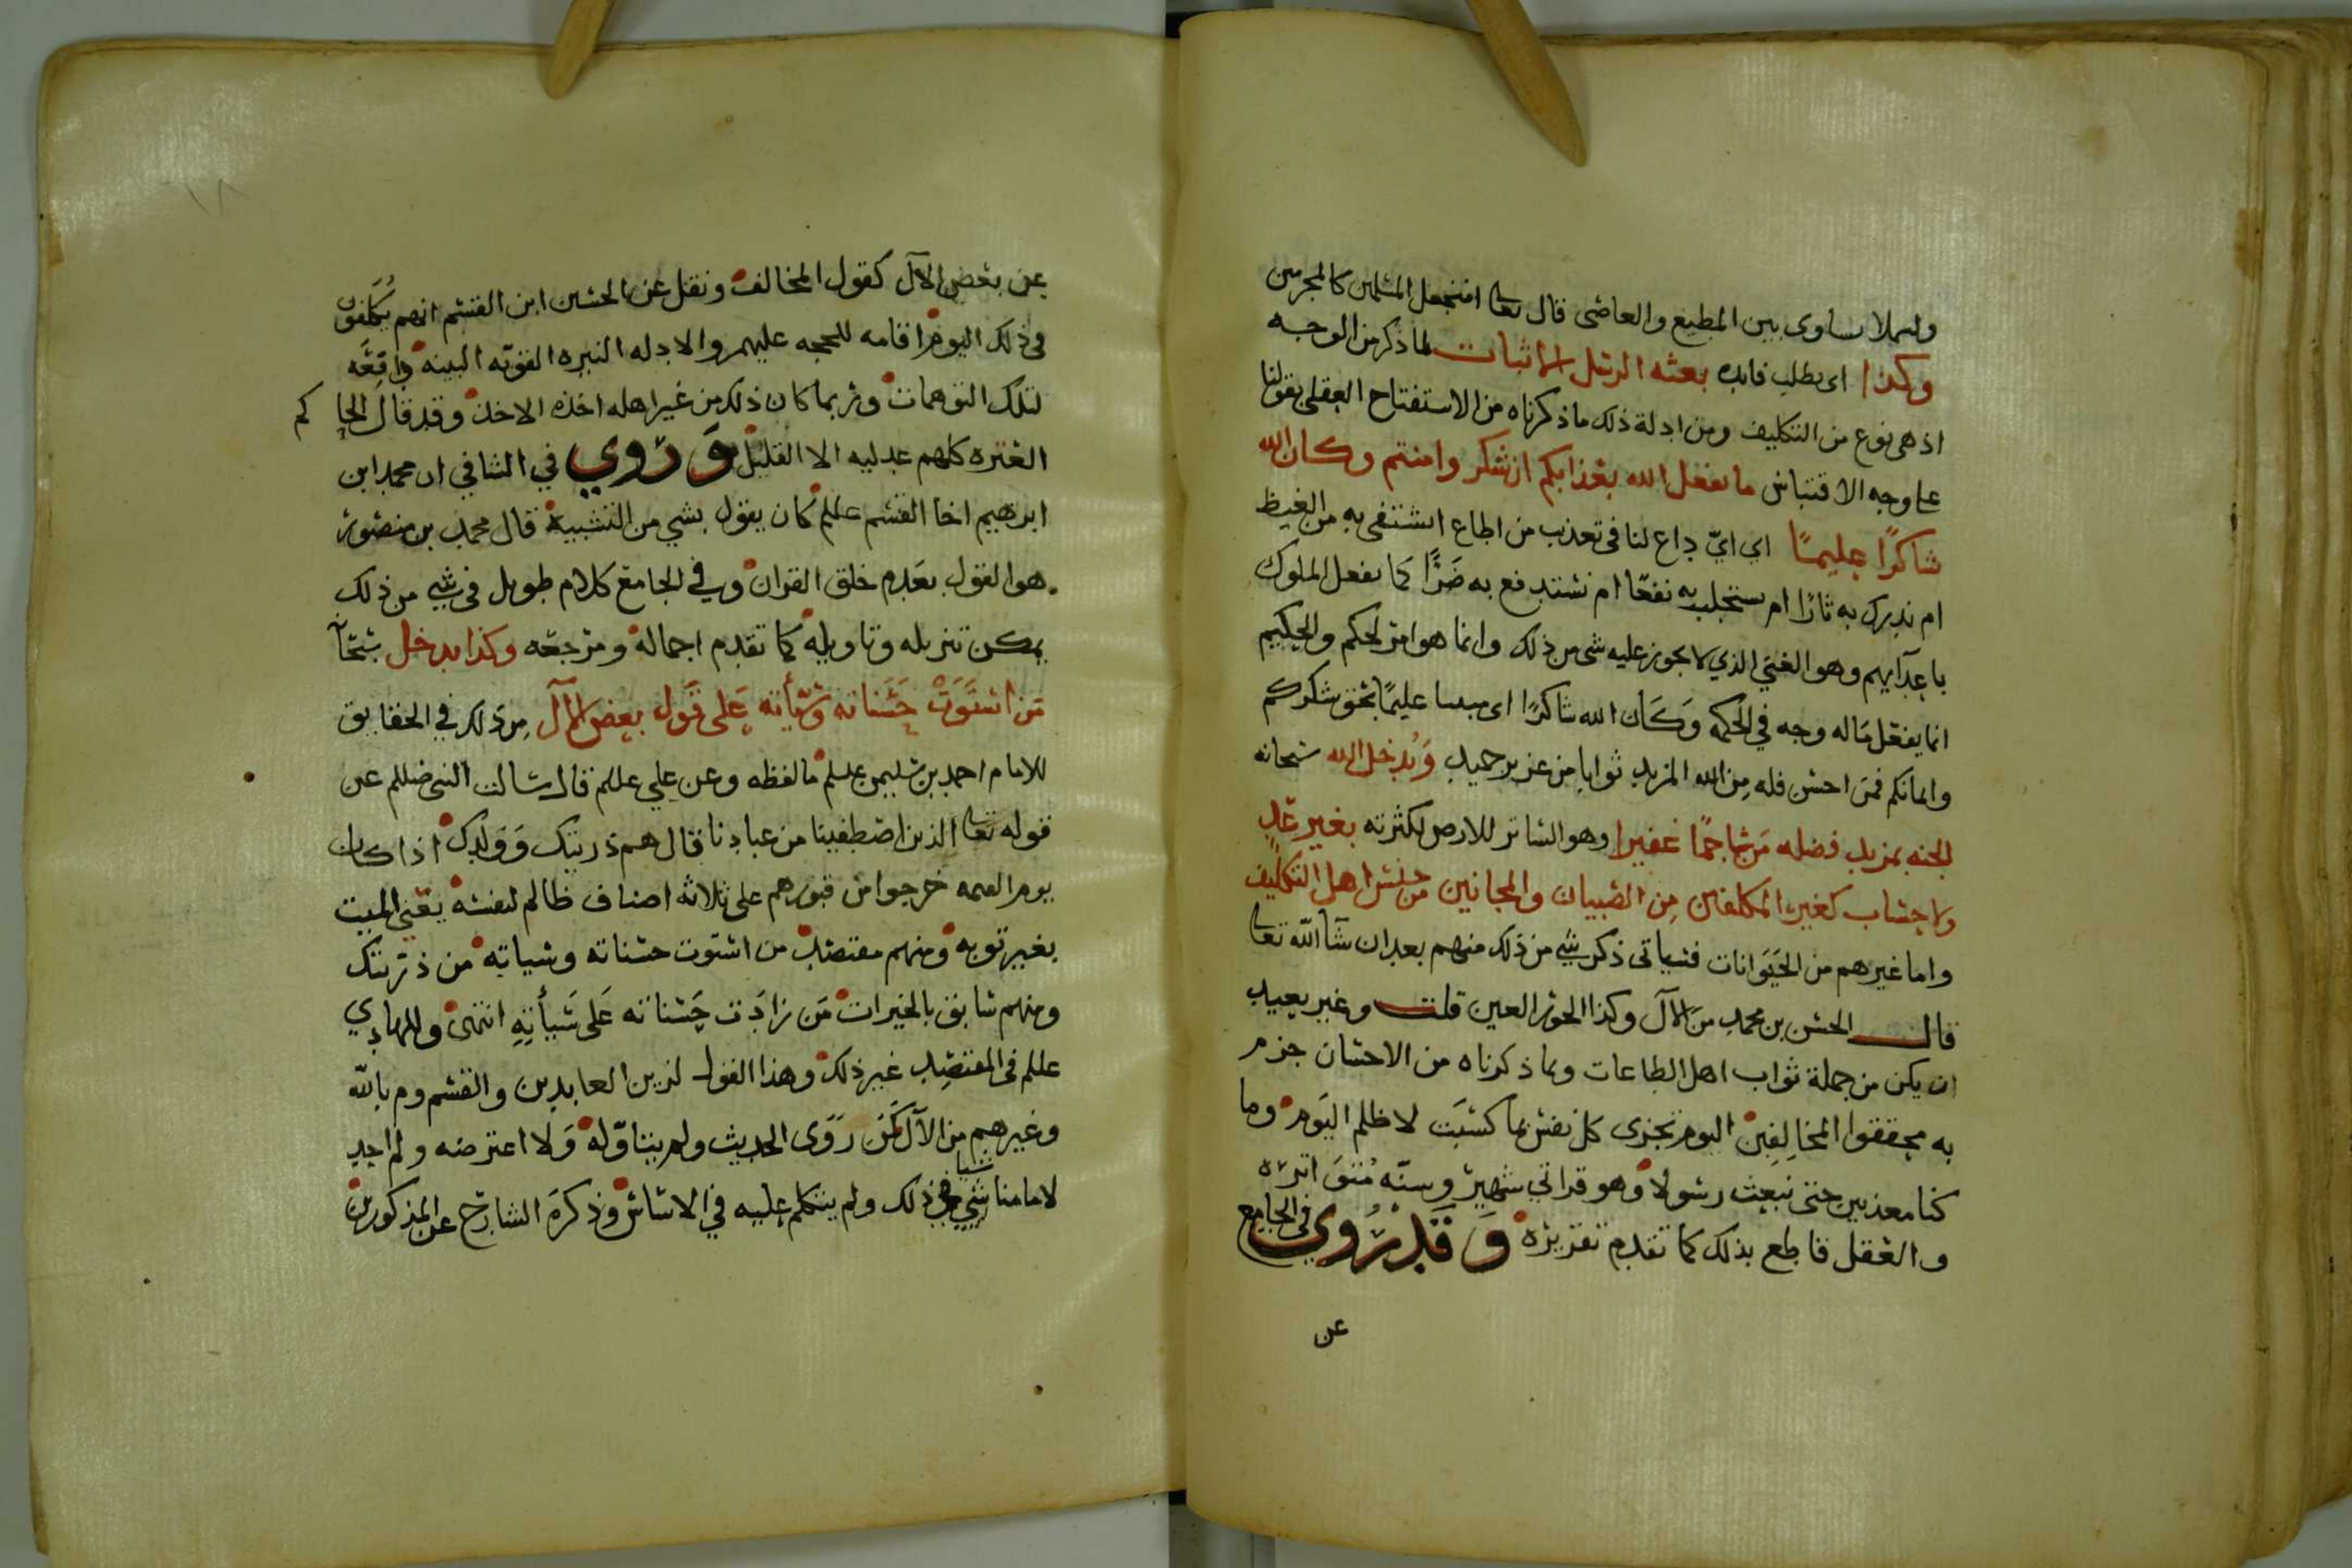 ولىلا ساوى بين المطيع والعاصى قال تعا افنجعل المسلمين كالمجرمين
وكذا اى بطلب فايده بعثه الرسل لما ذكر من الوجه
اذ هى نوع من التكليف ومن ادلة ذلك ما ذكرناه من الاستفتاح العقلى بقولنا
على وجه الاقتباس ما يفعل الله بعذابكم ان شكرتم وامنتم وكان الله
شاكرًا عليمًا اي ايّ داع لنا فى تعذيب من اطاع انشتفى به من الغيظ
ام ندرك به ثارًا ام نستجلب به نفعًا ام نستدفع به ضَرًّا كما يفعل الملوك
باعدآيهم وهو الغني الذي لا يجوز عليه شى من ذلك وانما هو امر لحكم والحكيم
انما يفعل ماله وجه في الحكمه وَكَان الله شاكرًا اى مثيبا عليمًا بحق شكركم
وايمانكم فمن احسن فله مِن الله المزيد ثوابا من عزيز حميد وَيُدخل الله سبحانه
الجنه بمزيد فضله جمًا غفيرا وهو الساتر للارض لكثرته بغير عَدٍ
ولا حساب كغير المكلفين مِن الصبيان والمجانين من جنس اهل التكليف
واما غيرهم من الحَيَوانات فسياتى ذكر شي من ذلك منهم بعد ان شآ الله تعا
قال الحسن بن محمد مَن الآل وكذا الحور العين قلت وغير بعيد
ان يكن من جملة ثواب اهل الطاعات وبما ذكرناه من الاحسان جزم
به محققوا المخالِفِين اليوم تجزى كل نفس بما كسَبَت لا ظلم اليَوم وما
كنا معذبين حتى نبعث رسولا وهو قراني شهير وسنّه اثره
والعقل قاطع بذلك كما تقدم تقريره وَقَد رُوي فى الجامع
عن
عن بعض الآل كقول المخالف ونقل عن الحسين ابن القسم انهم يُكَلّفون
فى ذلك اليوم اقامه للحجه عليهم والادله النيره القويّه البينه دافِعَه
لتلك التوهمات وربما كان ذلك من غير اهله اخذه الاخذ وقد قال الحا كم
العتره كلهم عدليه الا القليل وَرُوي في الشافي ان محمد ابن
ابرهيم اخا القسم عللم كان يقول بشي من التشبيه قال محمد بن منصور
هو القول بعَدم خلق القران وفي الجامع كلام طويل فى شي من ذلك
يمكن تنزيله وتاويله كما تقدم اجماله ومرجعه وكذا يدخل
مَن استَوَتْ حَسَناته وسَيِّأته عَلى قَول بعض الآل مِن ذلك في الحقايق
للامام احمد بن سليمن عللم مالفظه وعن علي عللم قال سالت النبى صللم عن
قوله تعا الذين اصطفينا من عبادنا قال هم ذريتك وَوَلدك اذا كان
يوم القيمه خرجوا من قبورهم على ثلاثه اصناف ظالم لنفسه يَعني الميت
بغير توبه ومنهم مقتصد من استوت حسناته وسياته من ذريتك
ومنهم سابق بالخيرات مَن زادت حَسَناته عَلى سَيأتِهِ انتهى وللهادي
عللم فى المقتصِد غير ذلك وهذا القول لزين العابدين والقسم وم بالله
وغيرهم مِن الآل كمَن رَوَى الحديث ولم يتاوّله وَلا اعترضه ولم اجد
لامامنا شيا فى ذلك ولم يتكلم عليه في الاساس وذكرَه الشارح عن المذكورين